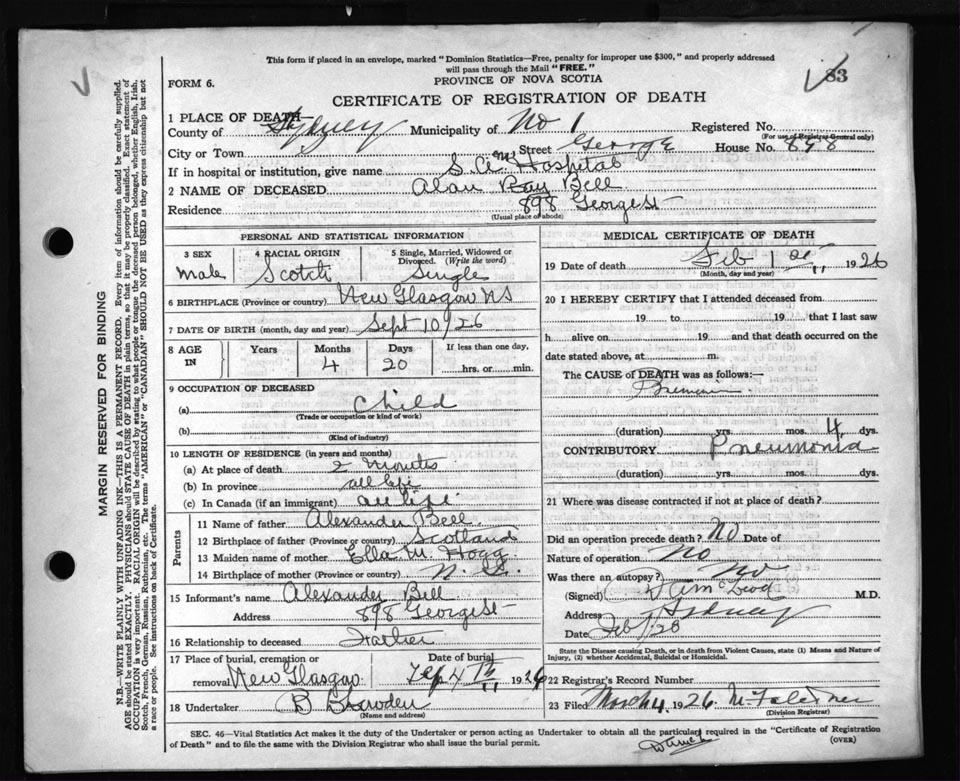 This form if placed in an envelope, marked "Dominion Statistics—Free, penalty for improper use $300," and properly addressed
will pass through the Mail "FREE."
FORM 6.
PROVINCE OF NOVA SCOTIA
83
CERTIFICATE OF REGISTRATION OF DEATH
1 PLACE OF DEATH—
County of Sydney Municipality of No 1 Registered No.
(For use of Registrar General only)
City or Town Street George House No. 898
If in hospital or institution, give name Hospital
2 NAME OF DECEASED Alan Ray Bell
Residence 898 George St
(Usual place of abode)
PERSONAL AND STATISTICAL INFORMATION
3 SEX 4 RACIAL ORIGIN 5 Single, Married, Widowed or
Divorced. (Write the word)
Male Scotch Single
6 BIRTHPLACE (Province or country) New Glasgow NS
7 DATE OF BIRTH (month, day and year) Sept 10/26
8 AGE IN Years Months Days If less than one day,
4 20 hrs. or min.
9 OCCUPATION OF DECEASED
(a) Child
(Trade or occupation or kind of work)
(b)
(Kind of industry)
10 LENGTH OF RESIDENCE (in years and months)
(a) At place of death 2 months
(b) In province all life
(c) In Canada (if an immigrant) all life
Parents
11 Name of father Alexander Bell
12 Birthplace of father (Province or country) Scotland
13 Maiden name of mother Ella M. Hogg
14 Birthplace of mother (Province or country) N. S.
15 Informant's name Alexander Bell
Address 898 George St
16 Relationship to deceased Father
17 Place of burial, cremation or Date of burial
removal New Glasgow Feb 4th 1926
18 Undertaker B Bowden
(Name and address)
MEDICAL CERTIFICATE OF DEATH
19 Date of death Feb 1st 1926
(Month, day and year)
20 I HEREBY CERTIFY that I attended deceased from
19 to 19 that I last saw
h alive on 19 and that death occurred on the
date stated above, at m.
The CAUSE of DEATH was as follows:—
(duration) yrs. mos. 4 dys.
CONTRIBUTORY Pneumonia
(duration) yrs. mos. dys.
21 Where was disease contracted if not at place of death?
Did an operation precede death? No Date of
Nature of operation No
Was there an autopsy? No
(Signed) M.D.
Address Sydney
Date Feb 1/26
State the Disease causing Death, or in death from Violent Causes, state (1) Means and Nature of
Injury, (2) whether Accidental, Suicidal or Homicidal.
22 Registrar's Record Number
23 Filed March 4, 1926
(Division Registrar)
SEC. 46—Vital Statistics Act makes it the duty of the Undertaker or person acting as Undertaker to obtain all the particulars required in the "Certificate of Registration
of Death" and to file the same with the Division Registrar who shall issue the burial permit. (OVER)
MARGIN RESERVED FOR BINDING
N.B.—WRITE PLAINLY WITH UNFADING INK—THIS IS A PERMANENT RECORD. Every item of information should be carefully supplied.
AGE should be stated EXACTLY. PHYSICIANS should STATE CAUSE OF DEATH in plain terms, so that it may be properly classified. Exact statement of
OCCUPATION is very important. RACIAL ORIGIN will be described by stating to what people or tongue the deceased person belonged, whether English, Irish,
Scotch, French, German, Russian, Ruthenian, etc. The terms "AMERICAN" or "CANADIAN" SHOULD NOT BE USED as they express citizenship but not
a race or people. See instructions on back of Certificate.